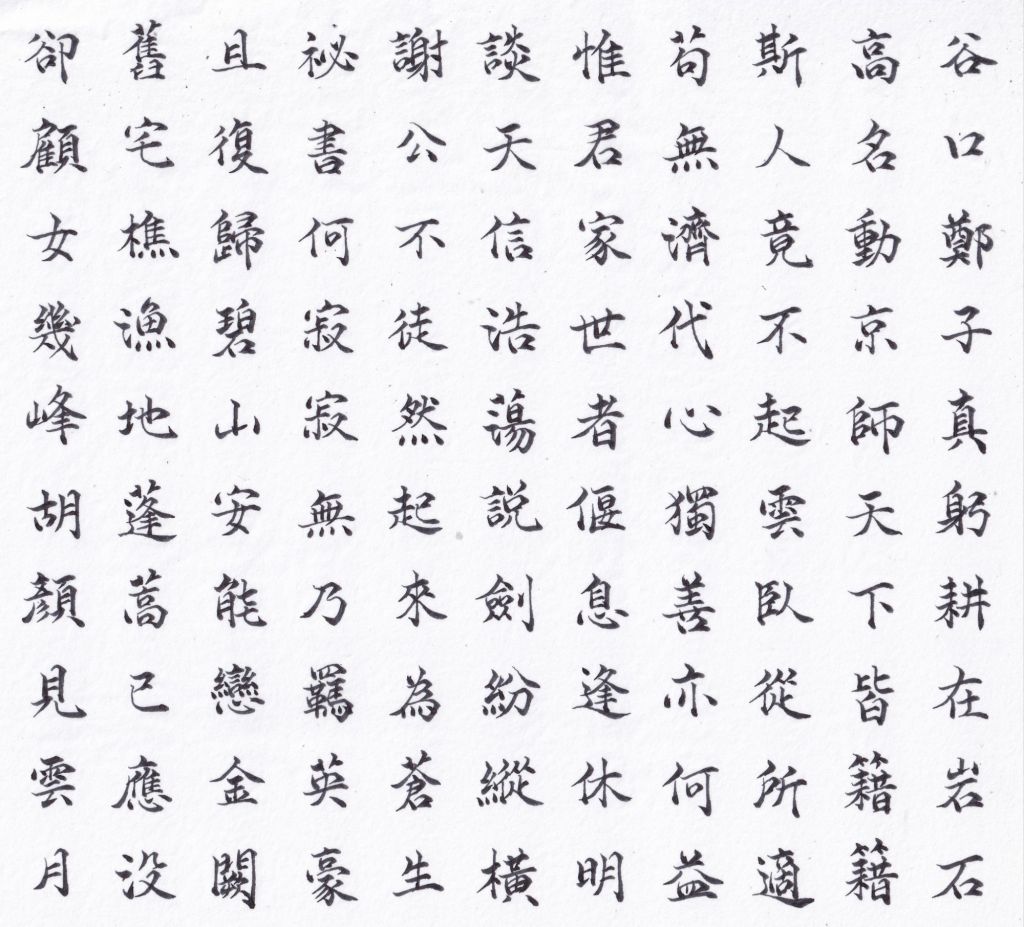 谷口鄭子真躬耕在岩石
高名動京師天下皆籍籍
斯人竟不起雲臥從所適
苟無濟代心獨善亦何益
惟君家世者偃息逢休明
談天信浩蕩説劍紛縱橫
謝公不徒然起來為蒼生
祕書何寂寂無乃羈英豪
且復歸碧山安能戀金闕
舊宅樵漁地蓬蒿已應没
卻顧女幾峰胡顏見雲月